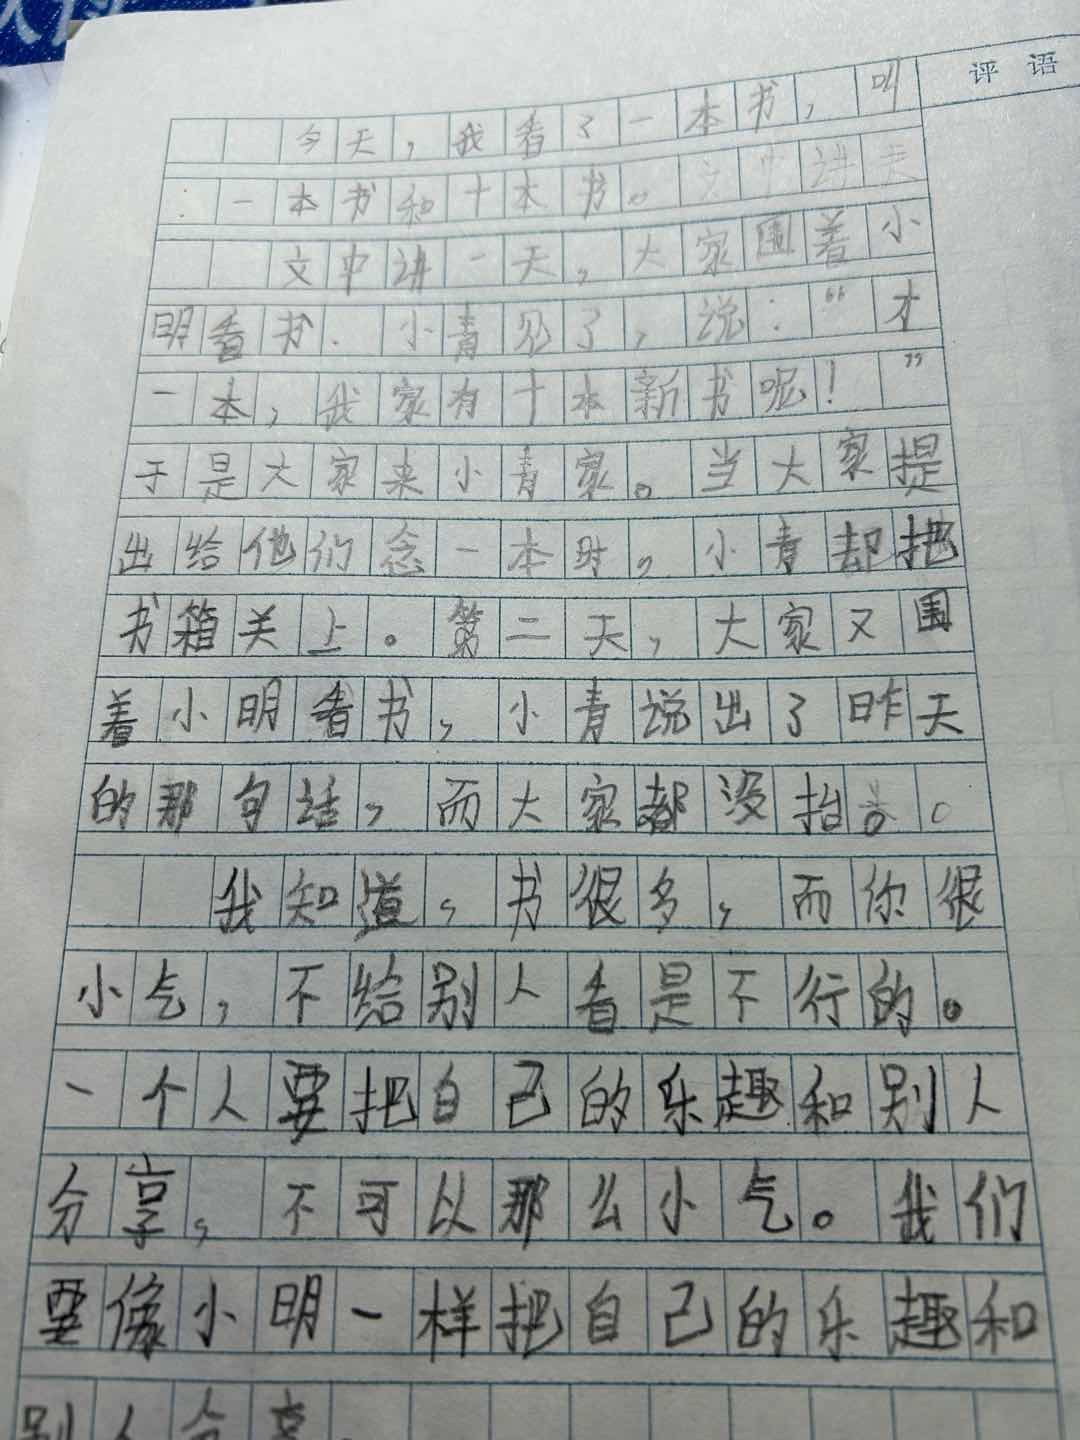 评语
今天，我看了一本书，叫
一本书和十本书。文中讲夫
文中讲一天，大家围着小
明看书．小青见了，说：“才
一本，我家有十本新书呢！”
于是大家来小青家。当大家提
出给他们念一本时，小青却把
书箱关上。第二天，大家又围
着小明看书，小青说出了昨天
的那句话，而大家都没抬
我知道，书很多，而你很
小气，不给别人看是不行的。
一个人要把自己的乐趣和别人
分享，不可以那么小气。我们
要像小明一样把自己的乐趣和
别人分享